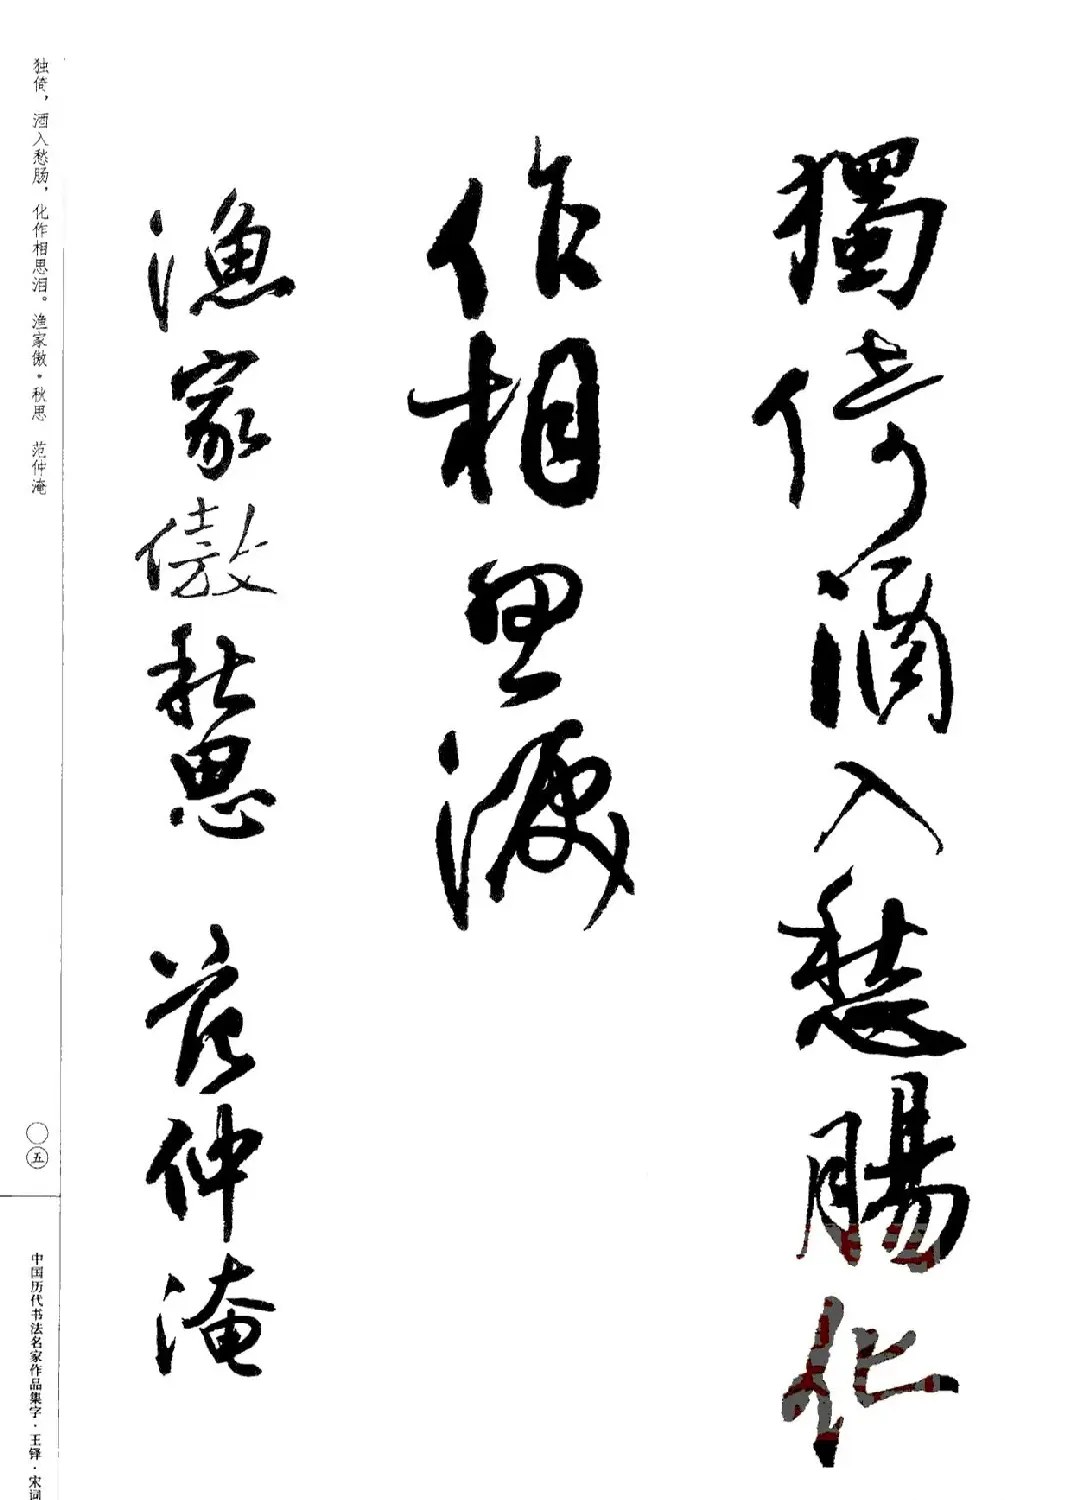 獨倚酒入愁腸化
作相思淚
漁家傲秋思 范仲淹
独倚，酒入愁肠，化作相思泪。渔家傲·秋思 范仲淹
〇五
中国历代书法名家作品集字·王铎·宋词